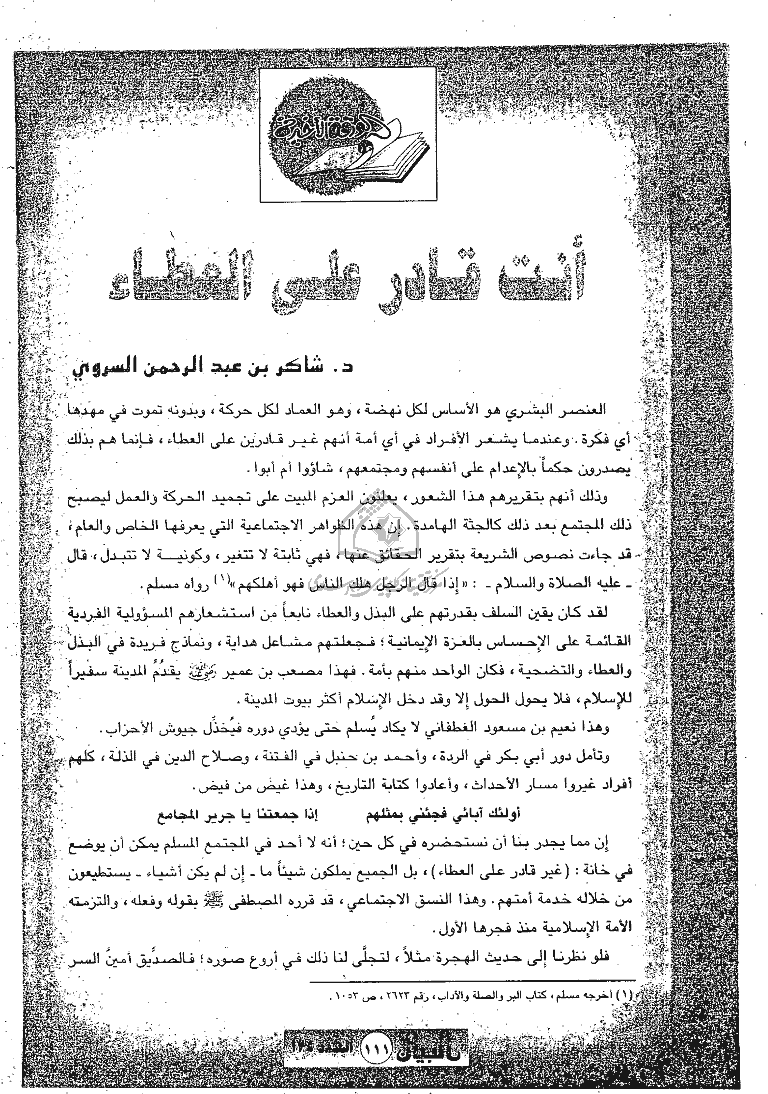 الورقة الأخيرة
أنت قادر على العطاء
د. شاكر بن عبد الرحمن السروي
العنصر البشري هو الأساس لكل نهضة، وهو العماد لكل حركة، وبدونه تموت في مهدها
أي فكرة. وعندما يشعر الأفراد في أي أمة أنهم غير قادرين على العطاء، فإنما هم بذلك
يصدرون حكماً بالإعدام على أنفسهم ومجتمعهم، شاؤوا أم أبوا.
وذلك أنهم بتقريرهم هذا الشعور، يعلنون العزم المبيت على تجميد الحركة والعمل ليصبح
ذلك المجتمع بعد ذلك كالجثة الهامدة. إن هذه الظواهر الاجتماعية التي يعرفها الخاص والعام،
قد جاءت نصوص الشريعة بتقرير الحقائق عنها، فهي ثابتة لا تتغير، وكونية لا تتبدل، قال
ـ عليه الصلاة والسلام ـ : «إذا قال الرجل هلك الناس فهو أهلكهم»(١) رواه مسلم.
لقد كان يقين السلف بقدرتهم على البذل والعطاء نابعاً من استشعارهم المسؤولية الفردية
القائمة على الإحساس بالعزة الإيمانية؛ فجعلتهم مشاعل هداية، ونماذج فريدة في البذل
والعطاء والتضحية، فكان الواحد منهم بأمة. فهذا مصعب بن عمير رضي الله عنه يقدُمُ المدينة سفيراً
للإسلام، فلا يحول الحول إلا وقد دخل الإسلام أكثر بيوت المدينة.
وهذا نعيم بن مسعود الغطفاني لا يكاد يُسلم حتى يؤدي دوره فيُخذِّل جيوش الأحزاب.
وتأمل دور أبي بكر في الردة، وأحمد بن حنبل في الفتنة، وصلاح الدين في الذلة، كلهم
أفراد غيروا مسار الأحداث، وأعادوا كتابة التاريخ، وهذا غيض من فيض.
أولئك آبائي فجئني بمثلهم إذا جمعتنا يا جرير المجامع
إن مما يجدر بنا أن نستحضره في كل حين؛ أنه لا أحد في المجتمع المسلم يمكن أن يوضع
في خانة: (غير قادر على العطاء)، بل الجميع يملكون شيئاً ما ـ إن لم يكن أشياء ـ يستطيعون
من خلاله خدمة أمتهم. وهذا النسق الاجتماعي، قد قرره المصطفى ﷺ بقوله وفعله، والتزمته
الأمة الإسلامية منذ فجرها الأول.
فلو نظرنا إلى حديث الهجرة مثلاً، لتجلَّى لنا ذلك في أروع صوره؛ فالصدِّيق أمينُ السر
(١) أخرجه مسلم، كتاب البر والصلة والآداب، رقم ٢٦٢٣، ص ١٠٥٣.
البيان ١١١ العدد